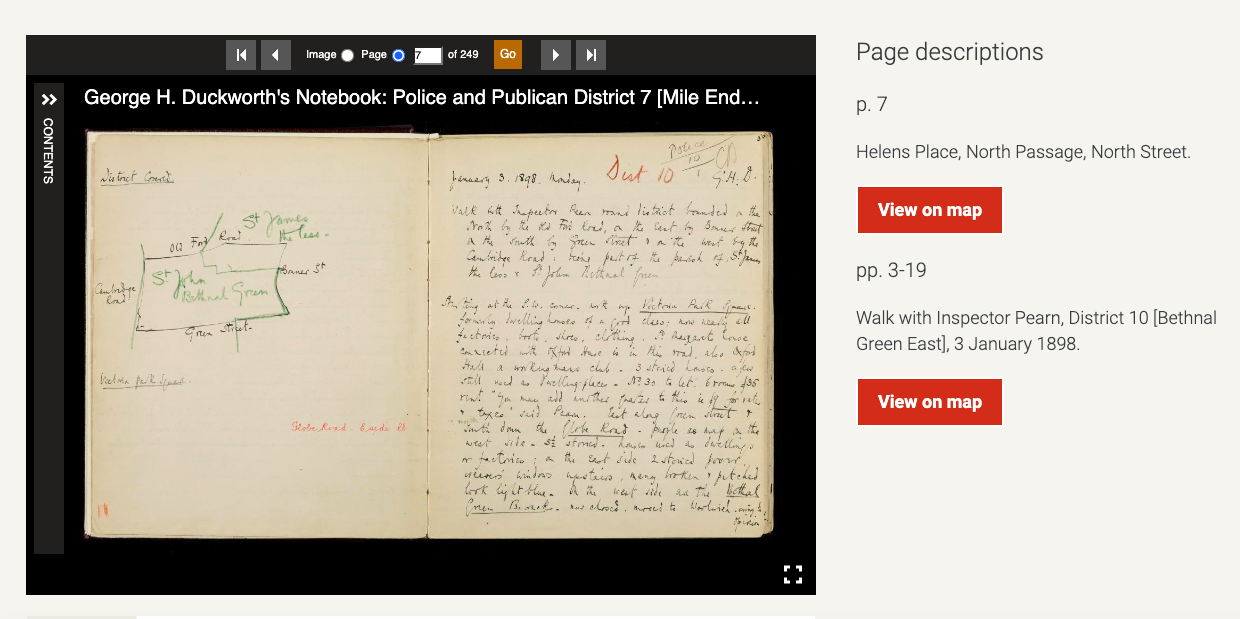 Image Page 7 of 249 Go
CONTENTS
George H. Duckworth's Notebook: Police and Publican District 7 [Mile End…
District Council.
St James
the less.
Old Ford Road
St John
Bethnal Green
Bonner St
Cambridge
Road
Green Street.
Victoria Park Square.
Globe Road. E side LB
Police
10
1
Dist 10
G.H.D.
January 3. 1898. Monday.
Walk with Inspector Pearn round district bounded on the
North by the Old Ford Road, on the East by Bonner Street
on the South by Green Street & on the West by the
Cambridge Road: being part of the parish of St James
the less & St John Bethnal Green
Starting at the S.W. corner. with up Victoria Park Square.
formerly dwelling houses of a good class; now nearly all
factories, boots, shoes, clothing. St Margarets House
connected with Oxford House is in this road, also Oxford
Hall a workingmans club. 3 storied houses. a few
still used as dwelling-places. No. 30 to let. 6 rooms £35
rent "You may add another quarter to this is for rates
& taxes" said Pearn. East along Green Street &
South down the Globe Road. purple as map on the
west side. 3½ storied. houses used as dwellings
or factories; on the East side 2 storied poor
weavers' windows upstairs, many broken & patched
look light blue. On the west side are the Bethnal
Green Barracks. now closed. moved to Woolwich. owing to
Page descriptions
p. 7
Helens Place, North Passage, North Street.
View on map
pp. 3-19
Walk with Inspector Pearn, District 10 [Bethnal
Green East], 3 January 1898.
View on map